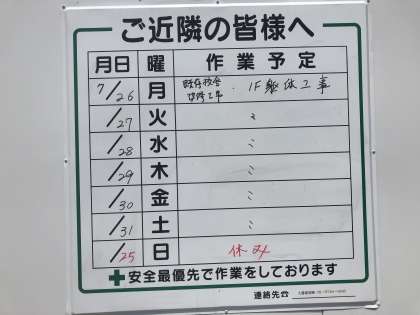 ご近隣の皆様へ
月日 曜 作業予定
7/26 月 既存校舎改修工事・1F躯体工事
/27 火 〃
/28 水 〃
/29 木 〃
/30 金 〃
/31 土 〃
/25 日 休み
安全最優先で作業をしております
連絡先☎